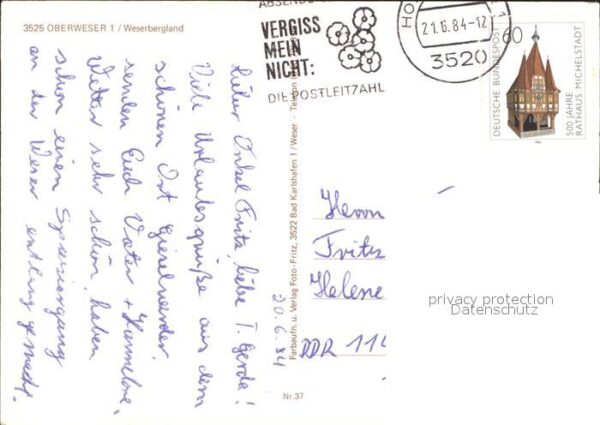 3525 OBERWESER 1 / Weserbergland
Lieber Onkel Fritz, liebe T. Gerda!
Viele Urlaubsgrüße aus dem
schönen Ort Gieselwerder,
senden Euch Vater + Hannelore.
Wetter sehr schön, haben
schon einen Spaziergang
an der Weser entlang gemacht.
20.6.84
Farbaufn. u. Verlag Foto-Fritz, 3522 Bad Karlshafen 1 / Weser - Telefon
Nr. 37
VERGISS
MEIN
NICHT:
DIE POSTLEITZAHL
21.6.84-12
3520
60
DEUTSCHE BUNDESPOST
500 JAHRE
RATHAUS MICHELSTADT
Herrn
Fritz
Helene
DDR 114
privacy protection
Datenschutz